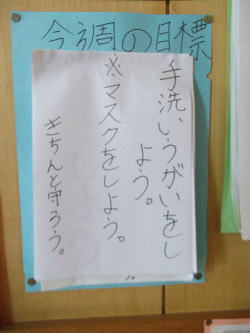 今週の目標
手洗いうがいをし
よう。
※マスクをしよう。
きちんと守ろう。